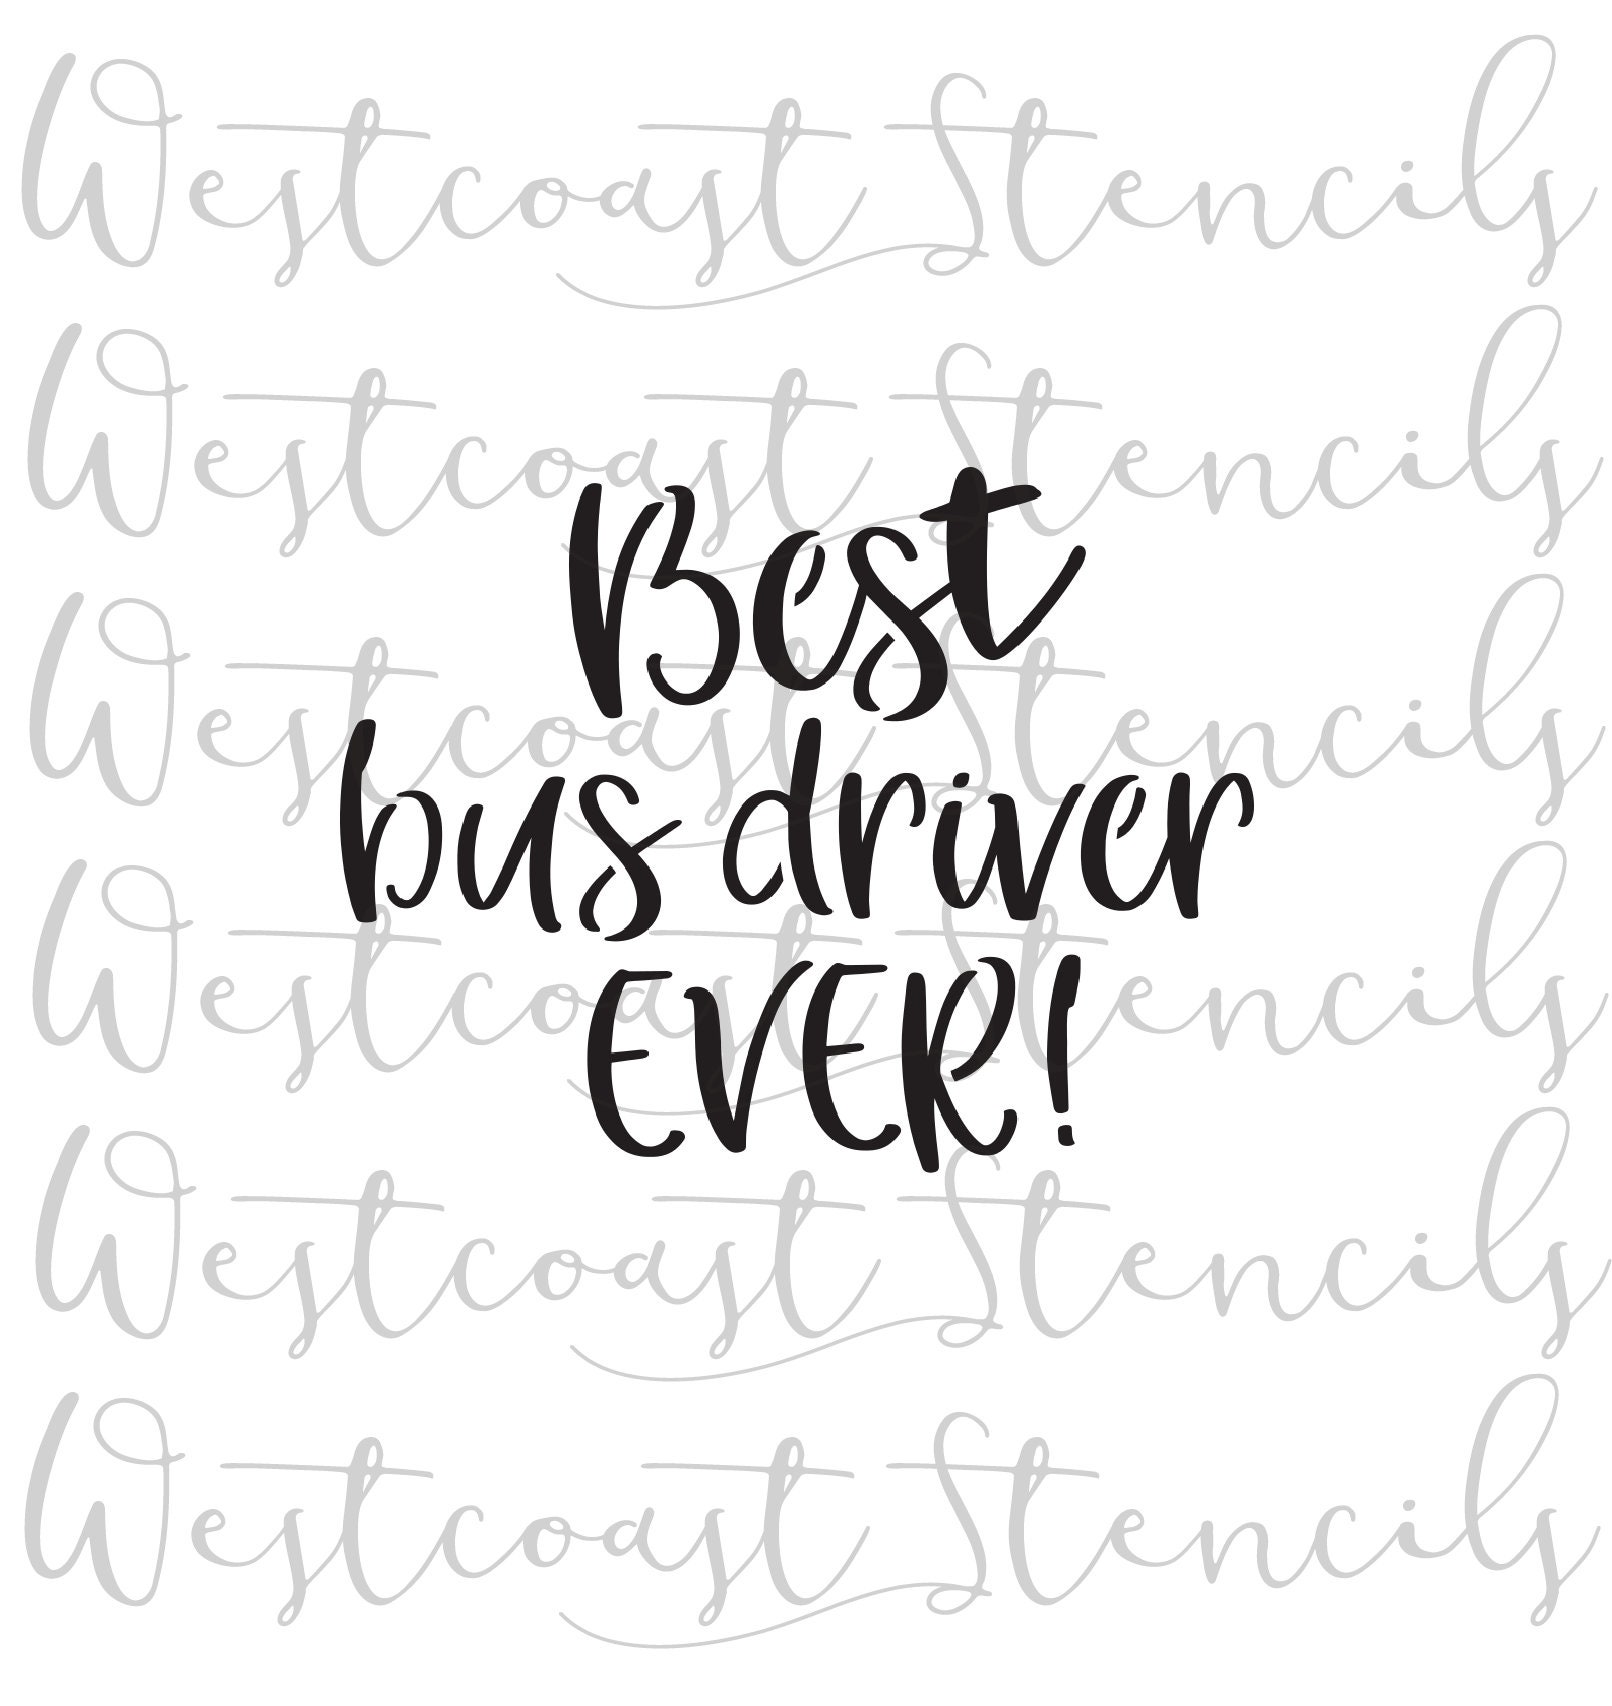 Westcoast Stencils
Westcoast Stencils
Best
Westcoast Stencils
bus driver
Westcoast Stencils
EVER!
Westcoast Stencils
Westcoast Stencils